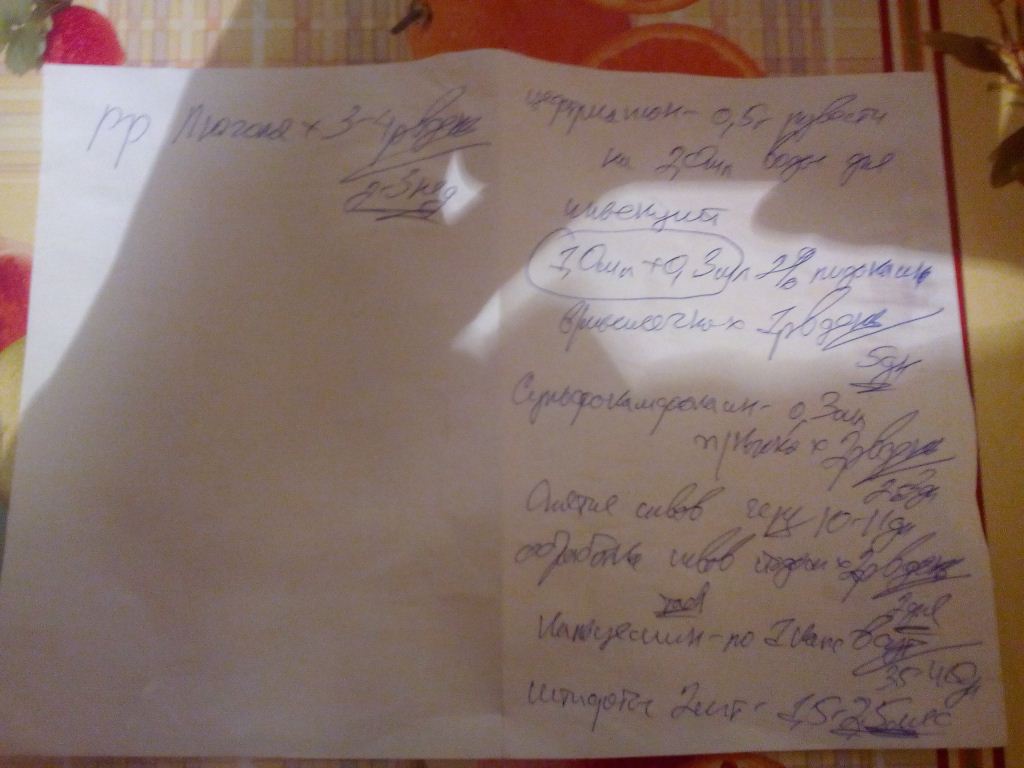 рр Люголя × 3-4р в день
2-3 нед
цефтриаксон - 0,5г развести
на 2,0мл воды для
инъекций
1,0мл + 0,3мл 2% лидокаин
внутримышечно × 1р в день
5дн
Сульфокамфокаин - 0,3мл
п/кожно × 2р в день
Снятие швов через 10-11дн
обработка швов × 2р в день
по 1 капс в день
35-40дн
2шт - 1,5-2,5 мес